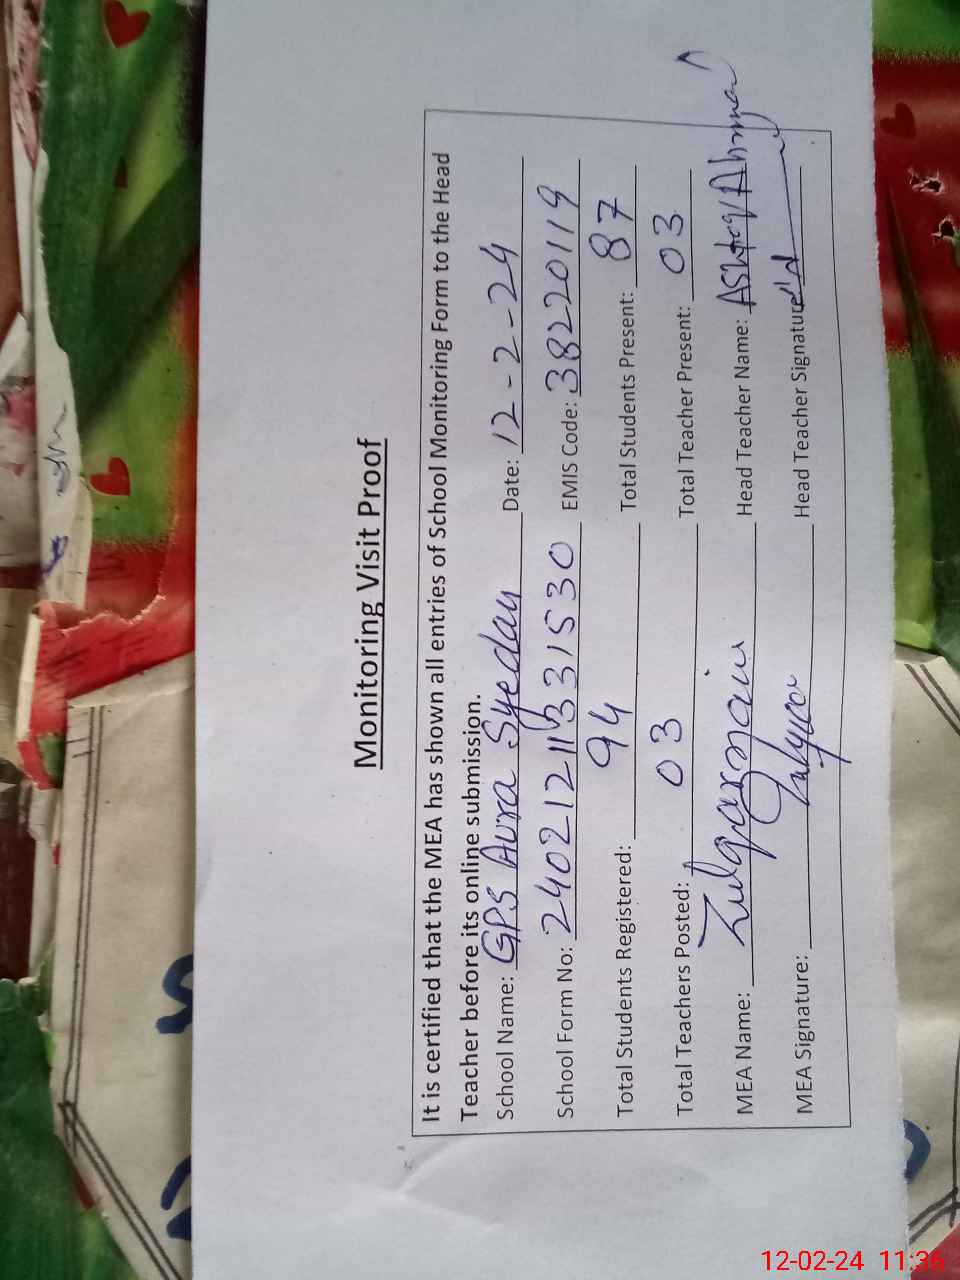 Monitoring Visit Proof
It is certified that the MEA has shown all entries of School Monitoring Form to the Head
Teacher before its online submission.
School Name: GPS Aura Syedan Date: 12-2-24
School Form No: EMIS Code: 38220119
Total Students Registered: 94 Total Students Present: 87
Total Teachers Posted: 03 Total Teacher Present: 03
MEA Name: Zulqarnain Head Teacher Name: Ashfaq Ahmad
MEA Signature: Head Teacher Signature:
12-02-24 11:36